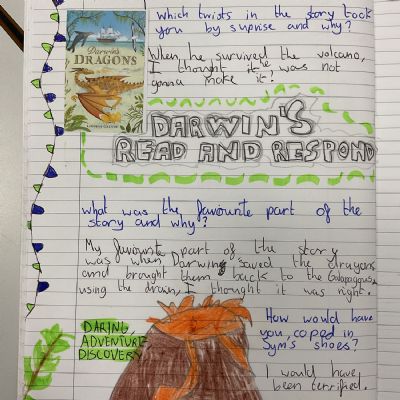 Darwin's
DRAGONS
LINDSAY GALVIN
which twists in the story took
you by suprise and why?
When he survived the volcano,
I thought he was not
gonna make it!
DARWIN'S
READ AND RESPOND
what was the favourite part of the
story and why?
My favourite part of the story
was when Darwin saved the dragons
and brought them back to the Galapagous,
using the drawn, I thought it was right.
DARING
ADVENTURE
DISCOVERY
How would have
you, coped in
Sym's shoes?
I would have
been terrified.